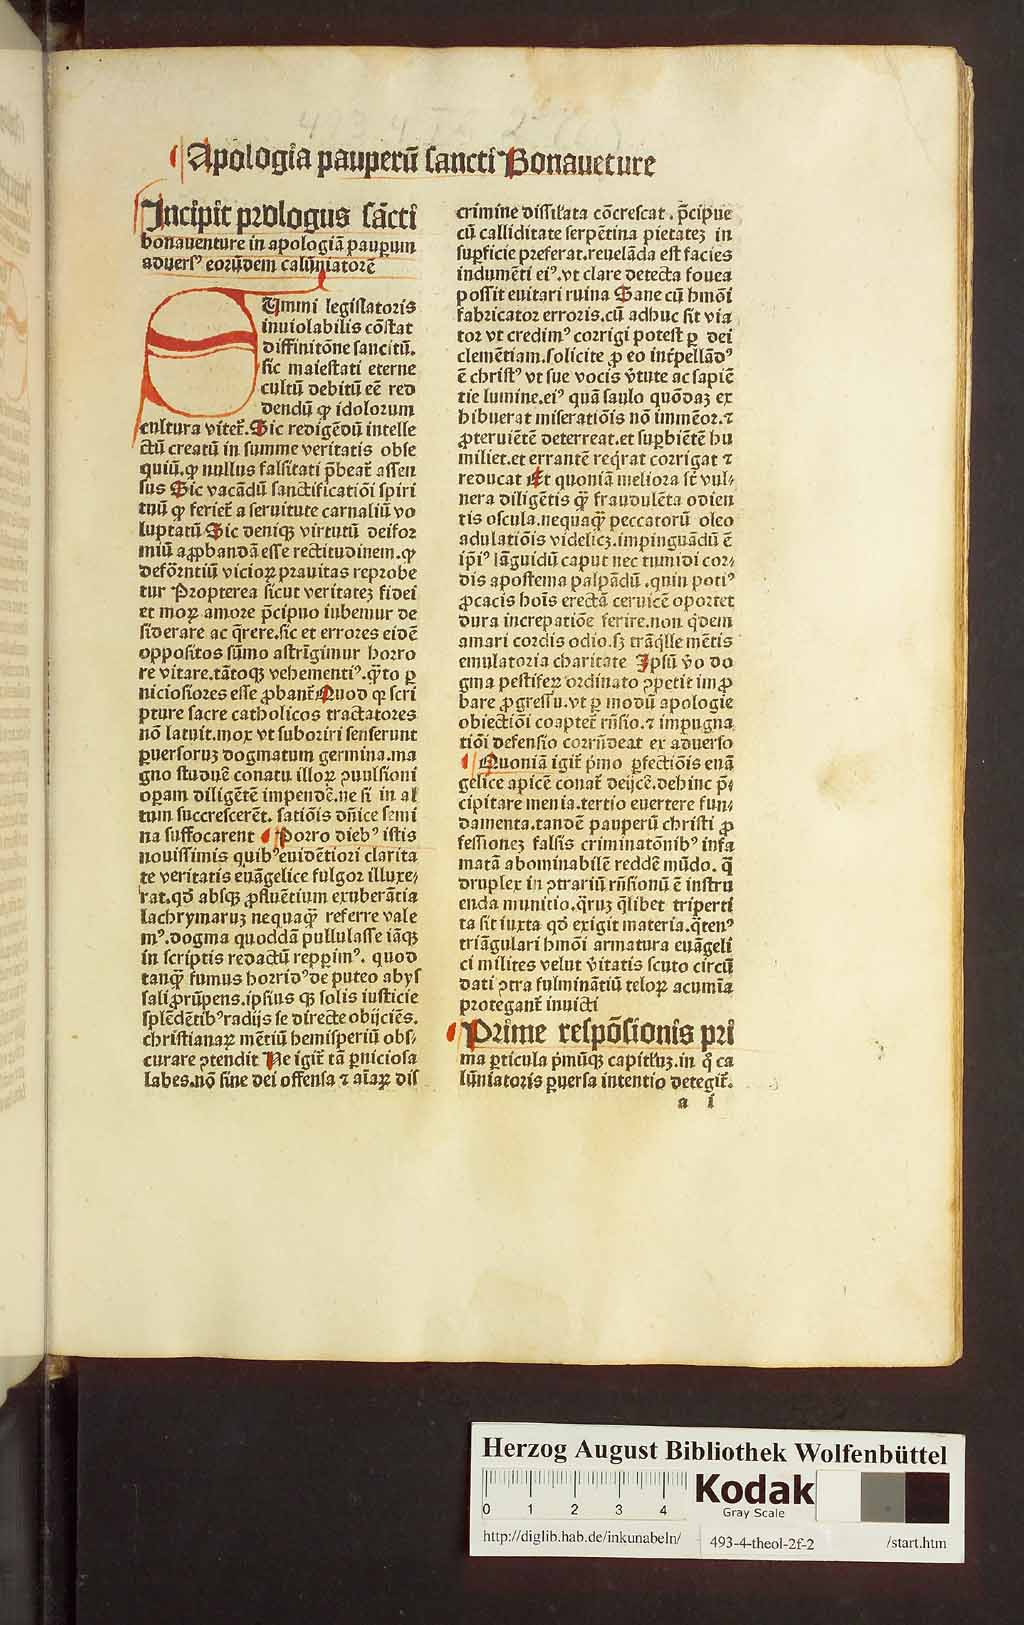 Apologia pauperū sancti Bonaueture
Incipit prologus sācti
bonauenture in apologiā pauꝑum
aduersꝰ eorūdem calūniatorē
Ummi legislatoris
inuiolabilis cōstat
diffinitōne sancitū.
sic maiestati eterne
cultū debitū eē red
dendū ꝙ idolorum
cultura vitet̄. Sic redigēdū intelle
ctū creatū in summe veritatis obse
quiū. ꝙ nullus falsitati p̄beat̄ assen
sus Sic vacādū sanctificatiōi spiri
tuū ꝙ feriet̄ a seruitute carnaliū vo
luptatū Sic deniqꝫ virtutū deifor
miū aꝓbandā esse rectitudinem. ꝙ
deformtiū vicioꝝ prauitas reprobe
tur Propterea sicut veritateꝫ fidei
et moꝝ amore p̄cipuo iubemur de
siderare ac q̄rere. sic et errores eidē
oppositos sūmo astrīgimur horro
re vitare. tātoqꝫ vehementiꝰ. q̄to ꝑ
niciosiores esse ꝓbant̄ Quod qꝫ scri
pture sacre catholicos tractatores
nō latuit. mox vt suboriri senserunt
ꝑuersoruꝫ dogmatum germina. ma
gno studuē conatu illoꝝ ꝯuulsioni
oꝑam diligētē impendē. ne si in al
tum succrescerēt. satiōis dn̄ice semi
na suffocarent Porro diebꝰ istis
nouissimis quibꝰ euidētiori clarita
te veritatis euāgelice fulgor illuxe/
rat. qd̄ absqꝫ ꝓfluētium exuberātia
lachrymaruꝫ nequaꝗ̄ referre vale
mꝰ. dogma quoddā pullulasse iāqꝫ
in scriptis redactū repꝑimꝰ. quod
tanꝗ̄ fumus horridꝰ de puteo abys
sali ꝓrūpens. ipsius qꝫ solis iusticie
splēdētibꝰ radijs se directe obijciēs.
christianaꝝ mētiū hemisperiū obs/
curare ꝯtendit Ne igit̄ tā ꝑniciosa
labes. nō sine dei offensa ⁊ aīaꝝ dis
crimine dissilata cōcrescat. p̄cipue
cū calliditate serpētina pietateꝫ in
suꝑficie preferat. reuelāda est facies
indumēti eiꝰ. vt clare detecta fouea
possit euitari ruina Sane cū hmōi
fabricator erroris. cū adhuc sit via
tor vt credimꝰ corrigi potest ꝑ dei
clemētiam. solicite ꝓ eo int̄pellādꝰ
ē christꝰ vt sue vocis v̄tute ac sapiē
tie lumine. eiꝰ quā saulo quōdaꝫ ex
hibuerat miseratiōis nō immēor. ⁊
ꝓteruiētē deterreat. et suꝑbiētē hu
miliet. et errantē reqͥrat corrigat ⁊
reducat Et quoniā meliora st̄ vul/
nera diligētis ꝗ̄ fraudulēta odien
tis oscula. nequaꝗ̄ peccatorū oleo
adulatiōis videlicꝫ. impinguādū ē
ip̄iꝰ lāguidū caput nec tumidi cor/
dis apostema palpādū. quin potiꝰ
ꝓcacis hoīs erectā ceruicē oportet
dura increpatiōe ferire. non qͥdem
amari cordis odio. sꝫ trāqͥlle mētis
emulatoria charitate Ipsū v̄o do
gma pestifeꝝ ordinato ꝯpetit imꝓ
bare ꝓgressu. vt ꝑ modū apologie
obiectiōi coaptet̄ rn̄sio. ⁊ impugna
tiōi defensio corrn̄deat ex aduerso
Quoniā igit̄ pͥmo ꝑfectiōis euā
gelice apicē conat̄ deijcē. dehinc p̄/
cipitare menia. tertio euertere fun/
damenta. tandē pauperū christi ꝓ
fessioneꝫ falsis criminatōnibꝰ infa
matā abominabilē reddē mūdo. q̄
druplex in ꝯtrariū rn̄sionū ē instru
enda munitio. q̄ruꝫ qͥlibet triperti
ta sit iuxta qd̄ exigit materia. q̄tenꝰ
triāgulari hmōi armatura euāgeli
ci milites velut v̄itatis scuto circū
dati ꝯtra fulminātiū teloꝝ acumīa
protegant̄ inuicti
Prime respōsionis pri
ma ꝑticula pͥmūqꝫ capitl̄uꝫ. in qͦ ca
lūniatoris ꝑuersa intentio detegit̄.
a i
Herzog August Bibliothek Wolfenbüttel
0 1 2 3 4
Kodak
Gray Scale
http://diglib.hab.de/inkunabeln/ 493-4-theol-2f-2 /start.htm